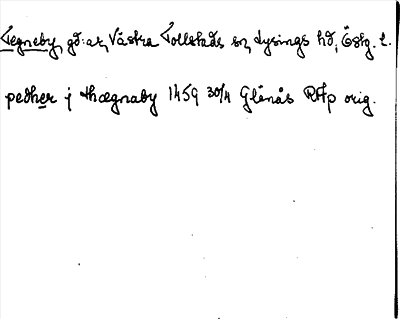 Tegneby, gd. ar, Västra Tollstads sn, Lysings hd, Östg. l.
pedher j thægnaby 1459 30/4 Glänås RAp orig.